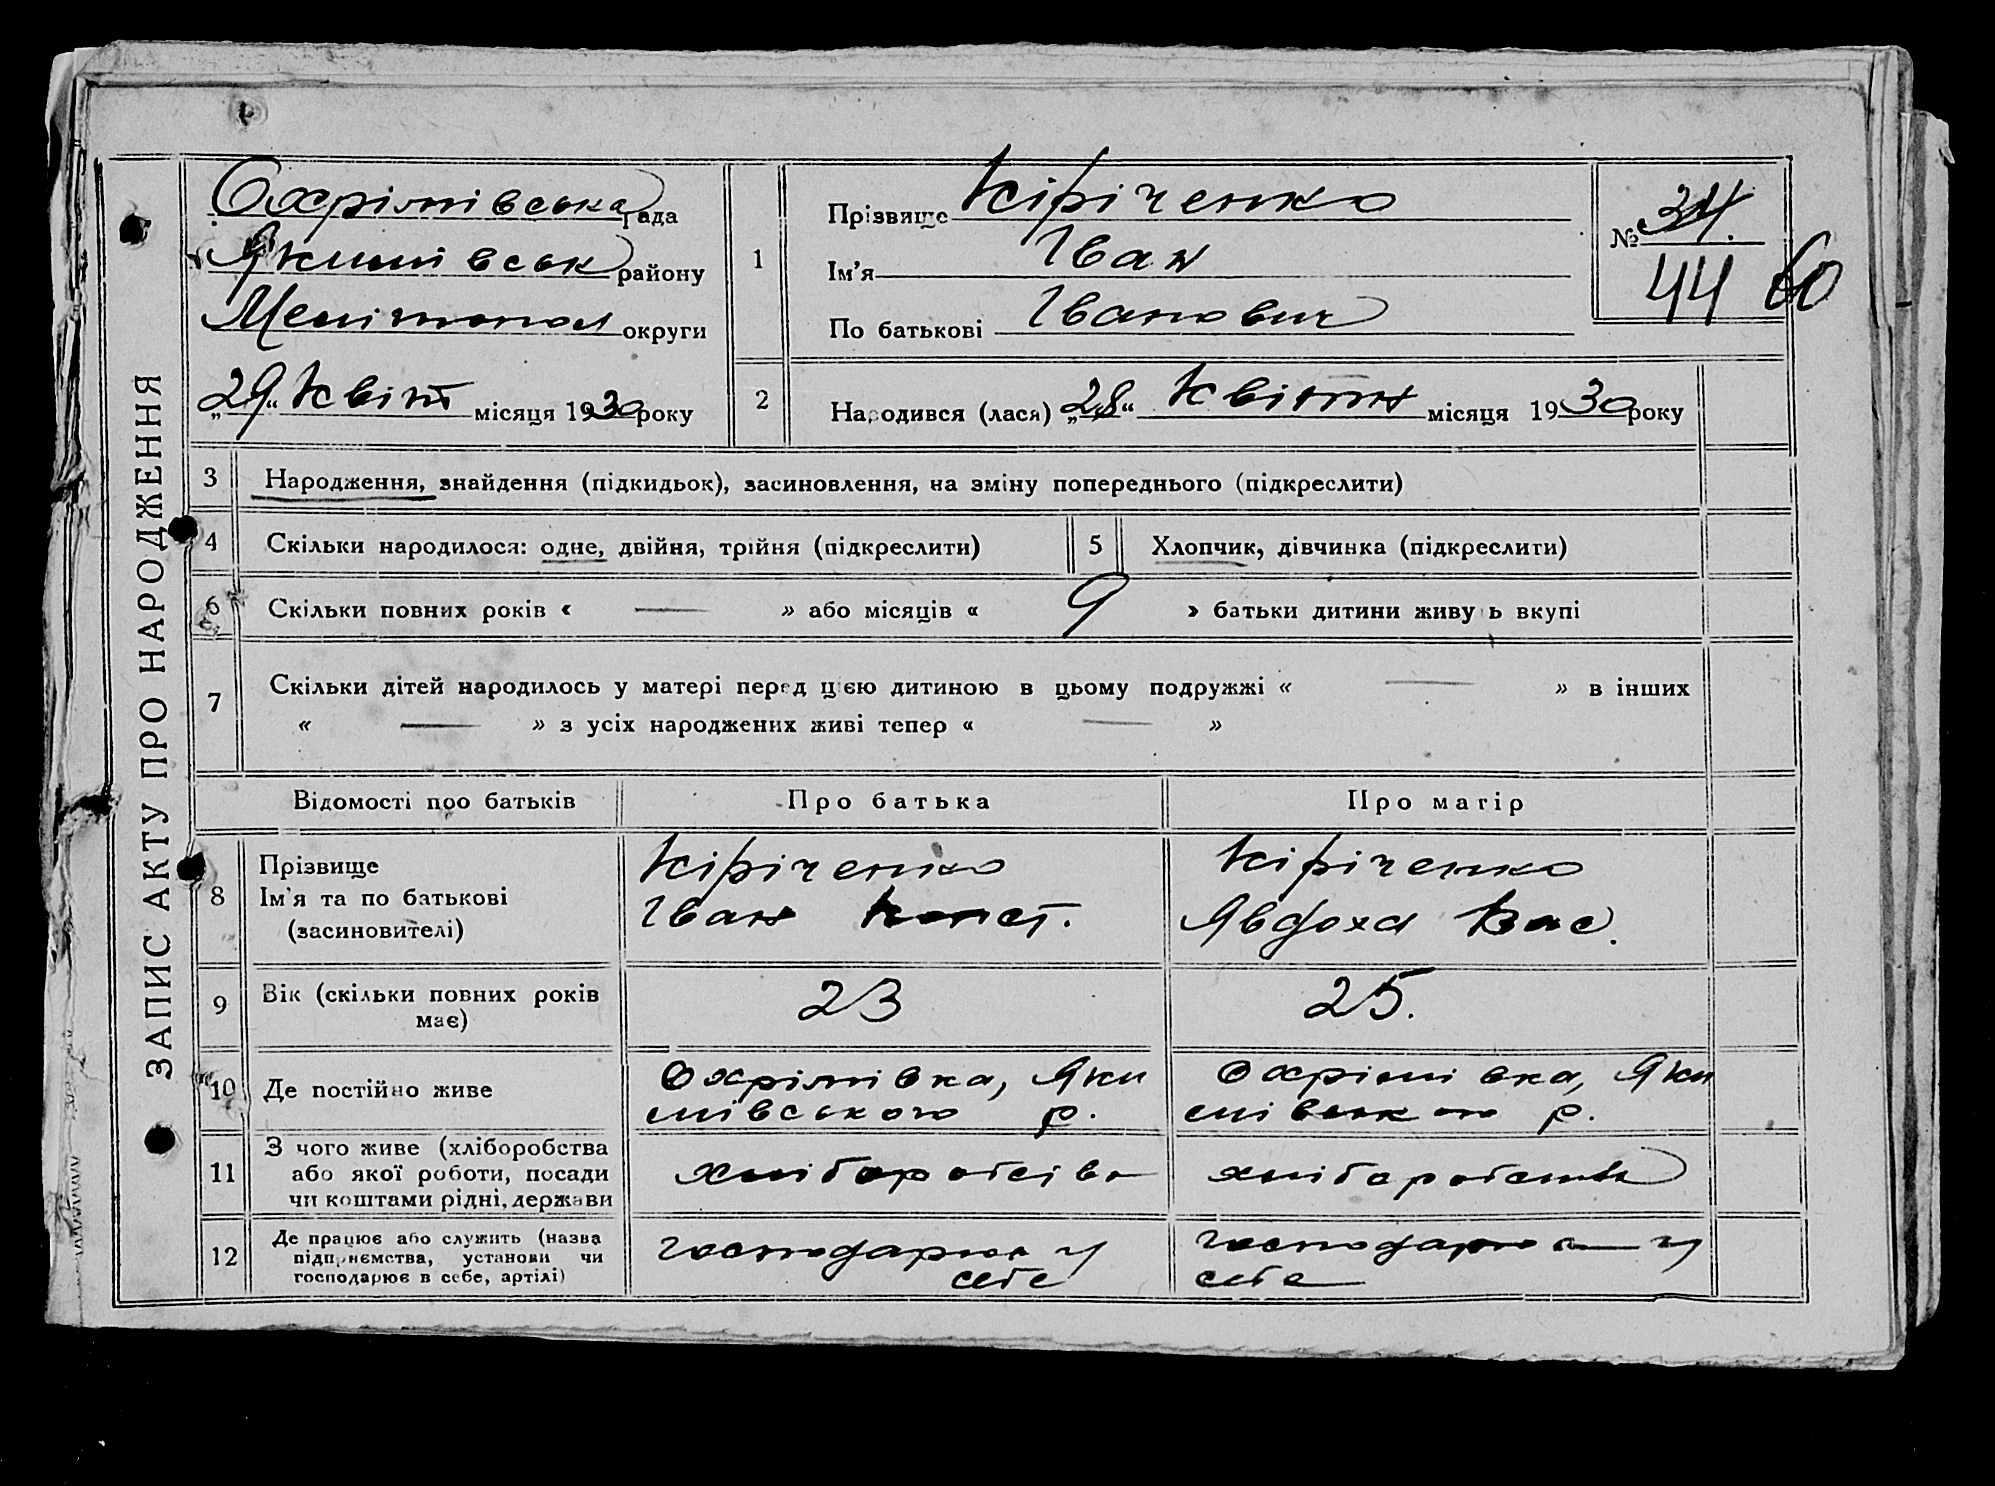 ЗАПИС АКТУ ПРО НАРОДЖЕННЯ
Охрімівська рада
Якимівськ району
Мелітопол округи
„29“ Квітн місяця 1930 року
1
Прізвище Кіріченко
Ім'я Іван
По батькові Іванович
№ 34.
44 60
2
Народився (лася) „28“ Квітня місяця 1930 року
3 Народження, знайдення (підкидьок), засиновлення, на зміну попереднього (підкреслити)
4 Скільки народилося: одне, двійня, трійня (підкреслити) 5 Хлопчик, дівчинка (підкреслити)
6 Скільки повних років « — » або місяців « 9 » батьки дитини живуть вкупі
7 Скільки дітей народилось у матері перед цією дитиною в цьому подружжі « — » в інших
« — » з усіх народжених живі тепер « — »
Відомості про батьків Про батька Про матір
8 Прізвище
Ім'я та по батькові
(засиновителі)
Кіріченко
Іван Конст.
Кіріченко
Явдоха Вас.
9 Вік (скільки повних років
має)
23
25.
10 Де постійно живе
Охрімівка, Яки
мівського р.
Охрімівка, Яки
мівського р.
11 З чого живе (хліборобства
або якої роботи, посади
чи коштами рідні, держави
хліборобство
хліборобство
12 Де працює або служить (назва
підприємства, установи чи
господарює в себе, артілі)
господарює у
себе
господарює у
себе